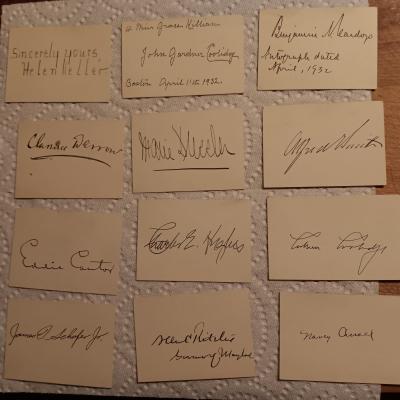 Sincerely yours,
Helen Keller
to Miss Grace Killian
John Gardner Coolidge
Boston April 11th 1932.
Benjamin N. Cardozo
Autograph dated
April, 1932
Clarence Darrow
Marie Dressler
Alfred
Eddie Cantor
Charles E. Hughes
Calvin Coolidge
James P.
Jr.
Albert C. Ritchie
Governor of Maryland
Nancy